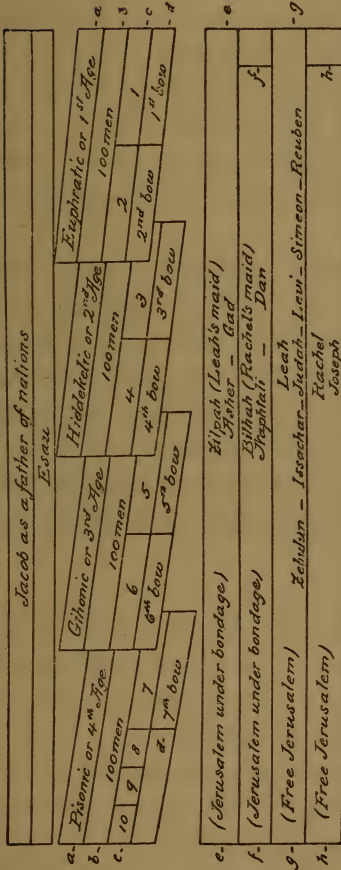 Jacob as a father of nations
Esau
a- Pisonic or 4th Age Gihonic or 3rd Age Hiddekelic or 2nd Age Euphratic or 1st Age -a
b- 100men 100men 100men 100men -3
c- 10 9 8 7 6 5 4 3 2 1 -c
d- 7th bow 6th bow 5th bow 4th bow 3rd bow 2nd bow 1st bow -d
e- (Jerusalem under bondage) Zilpah (Leah's maid) -e
Asher - Gad
f- (Jerusalem under bondage) Bilhah (Rachel's maid) f-
Naphtali - Dan
g- (Free Jerusalem) Leah -g
Zebulun - Issachar - Judah - Levi - Simeon - Reuben
h- (Free Jerusalem) Rachel h-
Joseph